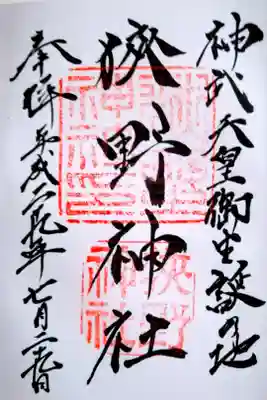 神武天皇御生誕の地
狭野神社
奉拝 平成二十九年 七月
狭野
神社